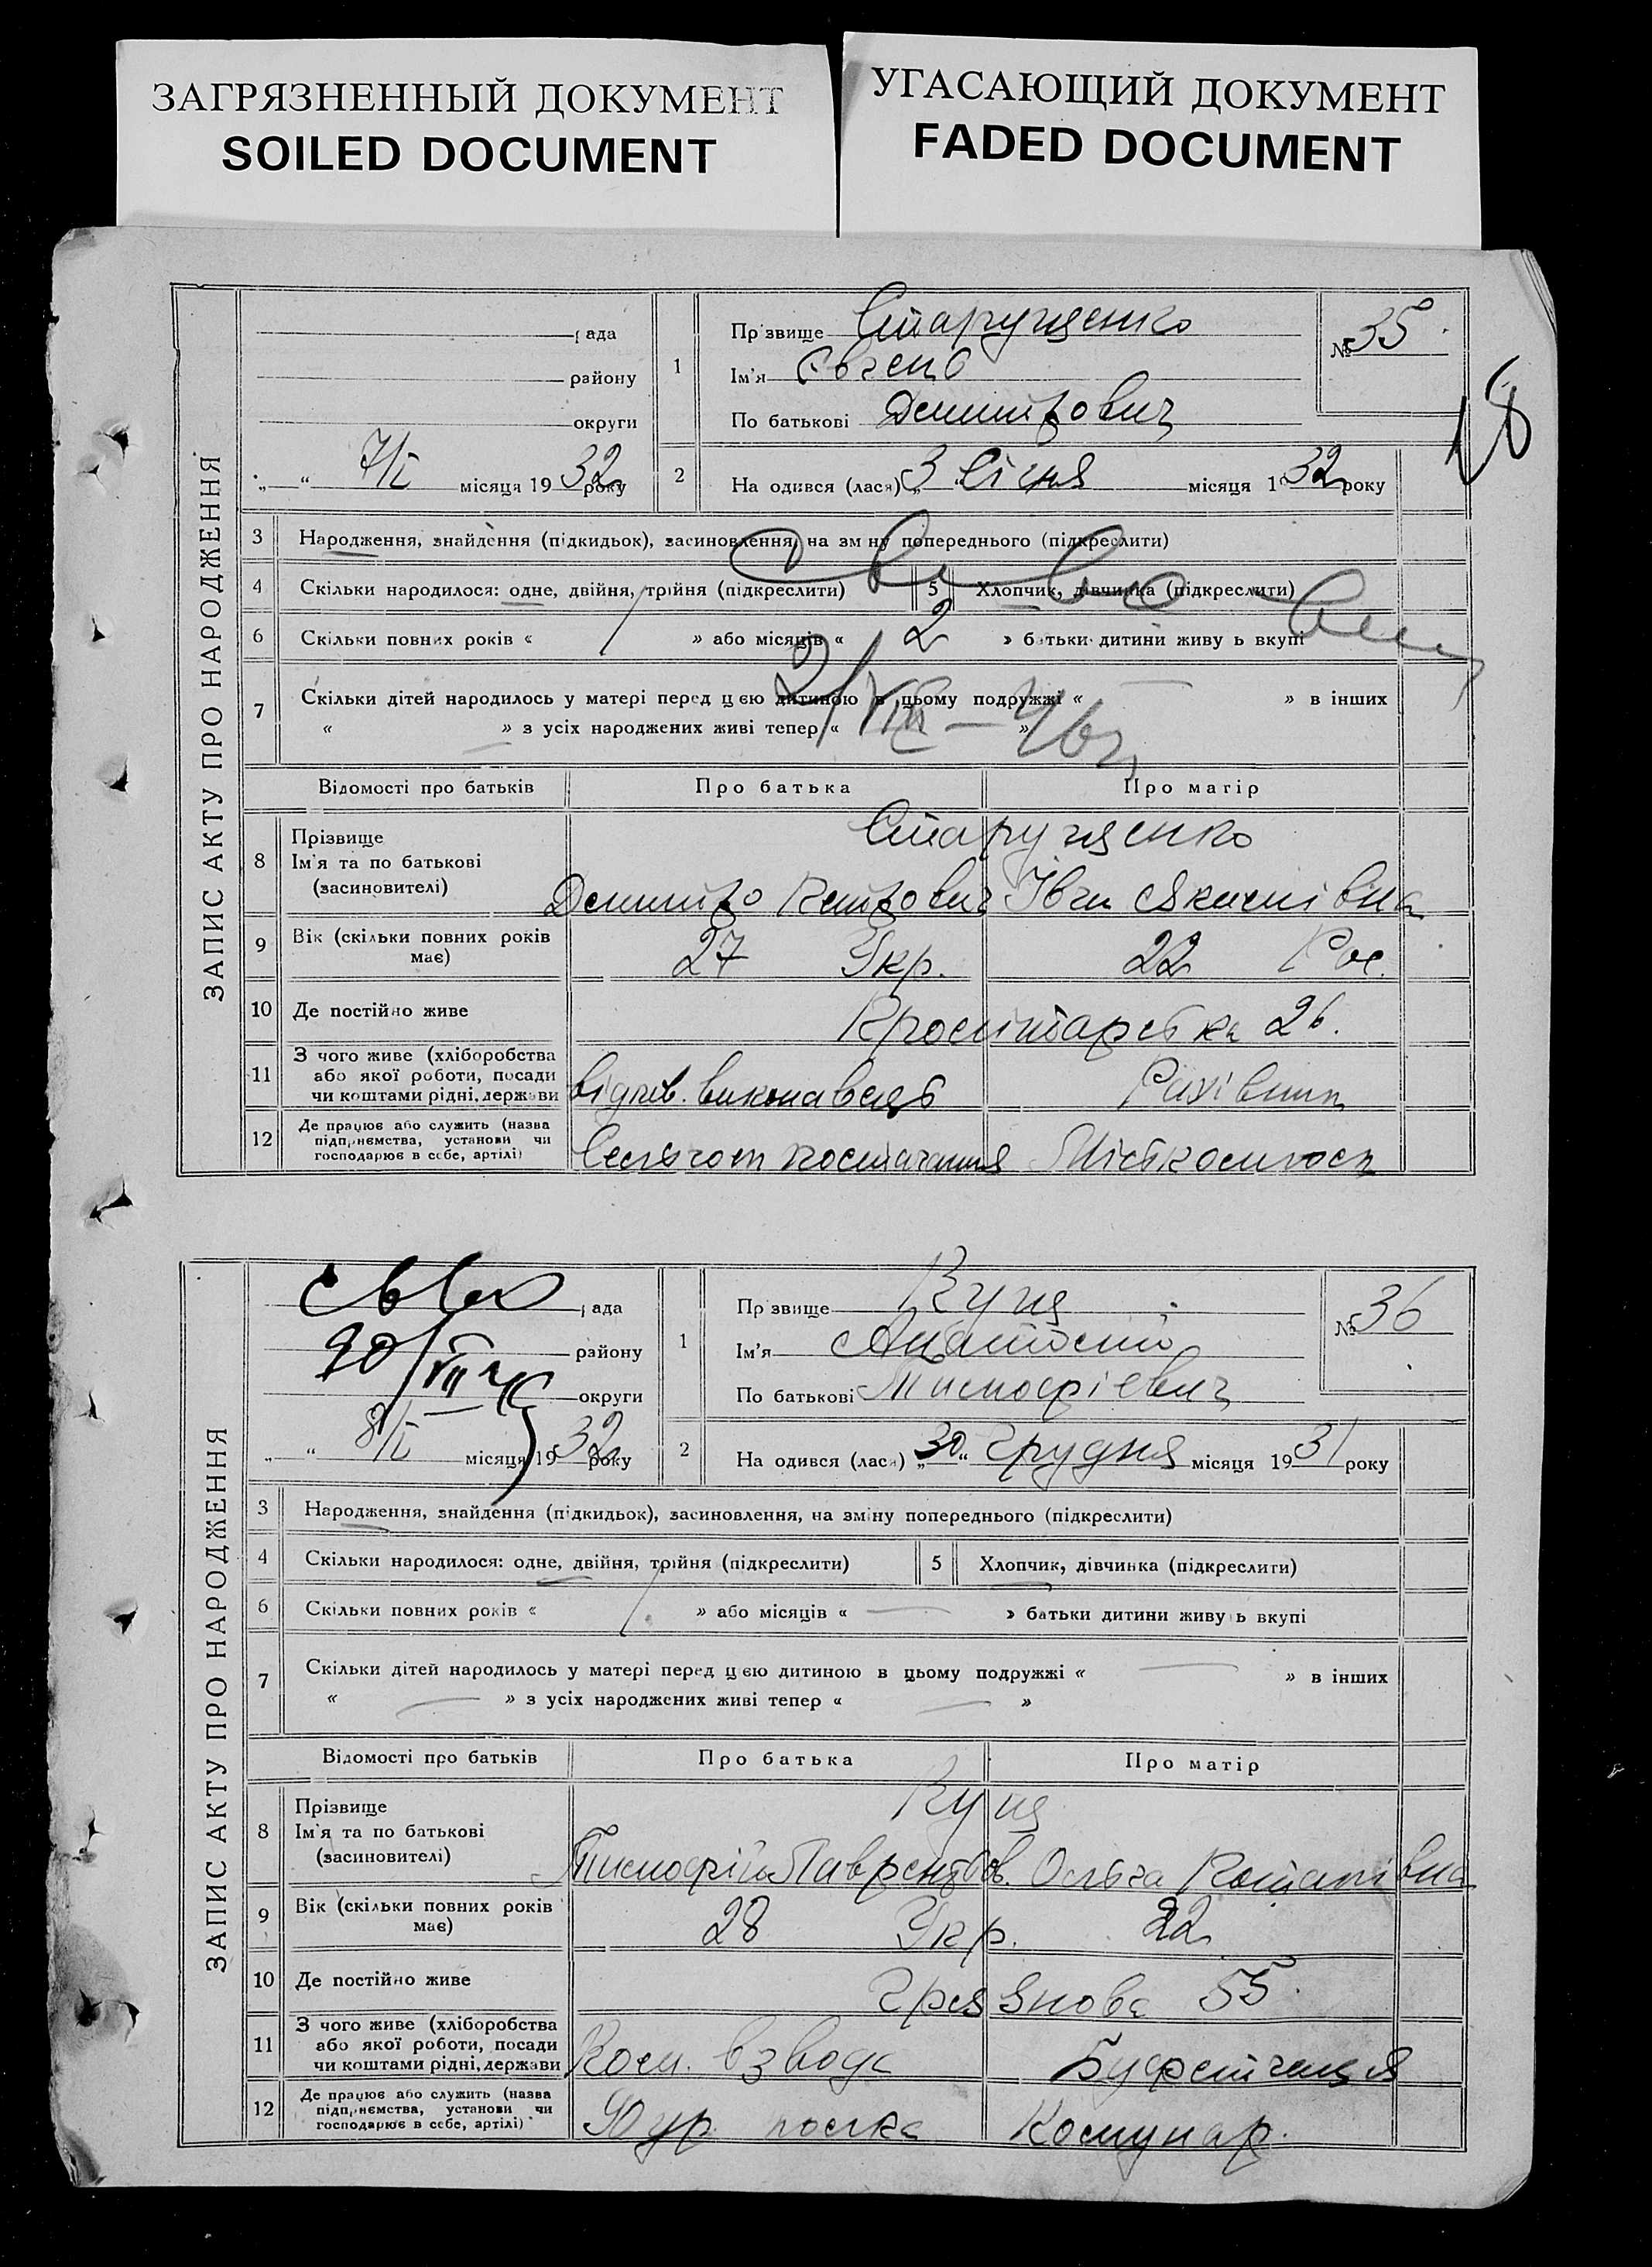 ЗАГРЯЗНЕННЫЙ ДОКУМЕНТ
SOILED DOCUMENT
УГАСАЮЩИЙ ДОКУМЕНТ
FADED DOCUMENT
18
ЗАПИС АКТУ ПРО НАРОДЖЕННЯ
рада
району
округи
„ “ 7/I місяця 1932 року
1
Прізвище Старущенко
Ім'я Євген
По батькові Дмитрович
№ 35
2
На одився (лася) „3“ Січня місяця 1932 року
3 Народження, знайдення (підкидьок), засиновлення, на зміну попереднього (підкреслити)
4 Скільки народилося: одне, двійня, трійня (підкреслити) 5 Хлопчик, дівчинка (підкреслити)
6 Скільки повних років « / » або місяців « 2 » батьки дитини живуть вкупі
7 Скільки дітей народилось у матері перед цією дитиною в цьому подружжі « — » в інших
« — » з усіх народжених живі тепер « »
2/VIII — 46
Відомості про батьків Про батька Про матір
8 Прізвище
Ім'я та по батькові
(засиновителі)
Старущенко
Дмитро Петрович
9 Вік (скільки повних років має) 27 Укр. 22 Рос.
10 Де постійно живе 26.
11 З чого живе (хліборобства або якої роботи, посади чи коштами рідні, держави
відпов. виконавець Рахівник
12 Де працює або служить (назва підприємства, установи чи господарює в себе, артілі)
постачання
ЗАПИС АКТУ ПРО НАРОДЖЕННЯ
рада
району
округи
„ “ 8/I місяця 1932 року
1
Прізвище Куца
Ім'я Анатолій
По батькові Тимофієвич
№ 36
2
На одився (лася) „30“ Грудня місяця 1931 року
3 Народження, знайдення (підкидьок), засиновлення, на зміну попереднього (підкреслити)
4 Скільки народилося: одне, двійня, трійня (підкреслити) 5 Хлопчик, дівчинка (підкреслити)
6 Скільки повних років « / » або місяців « — » батьки дитини живуть вкупі
7 Скільки дітей народилось у матері перед цією дитиною в цьому подружжі « — » в інших
« — » з усіх народжених живі тепер « — »
Відомості про батьків Про батька Про матір
8 Прізвище
Ім'я та по батькові
(засиновителі)
Куца
Тимофій Лаврентьев. Ольга
9 Вік (скільки повних років має) 28 Укр. 22
10 Де постійно живе Грязнова 55
11 З чого живе (хліборобства або якої роботи, посади чи коштами рідні, держави
Ком. взвода Буфетчиця
12 Де працює або служить (назва підприємства, установи чи господарює в себе, артілі)
полка Комунар.